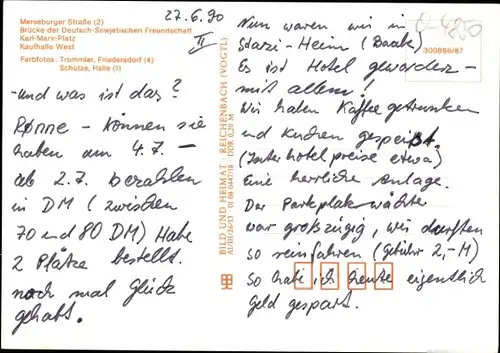 Merseburger Straße (2)
Brücke der Deutsch-Sowjetischen Freundschaft
Karl-Marx-Platz
Kaufhalle West
Farbfotos: Trommler, Friedersdorf (4)
Schütze, Halle (1)
27.6.90
II
-und was ist das?
Rønne - können sie
haben am 4.7. -
ab 2.7. bezahlen
in DM (zwischen
70 und 80 DM) Habe
2 Plätze bestellt.
noch mal Glück
gehabt.
BILD UND HEIMAT · REICHENBACH (VOGTL)
AI/III/26/13 · 01 08 0447/18 DDR 0,20 M
300896/87
Nun waren wir in
Stasi-Heim (Baabe)
Es ist Hotel geworden -
mit allem!
Wir haben Kaffee getrunken
und Kuchen gespeist.
(Interhotelpreise etwa)
Eine herrliche Anlage.
Der Parkplatzwächter
war großzügig, wir durften
so reinfahren (Gebühr 2,-M)
So habe ich heute eigentlich
Geld gespart.